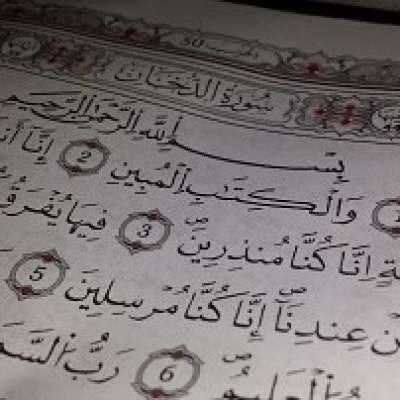 الحزب 50
سُورَةُ الدُّخَانِ
بِسْمِ اللَّهِ الرَّحْمَٰنِ الرَّحِيمِ
1 وَالْكِتَٰبِ الْمُبِينِ 2 إِنَّا
إِنَّا كُنَّا مُنذِرِينَ 3 فِيهَا يُفْرَقُ
عِندِنَا إِنَّا كُنَّا مُرْسِلِينَ 5
الْعَلِيمُ 6 رَبُّ السَّمَ